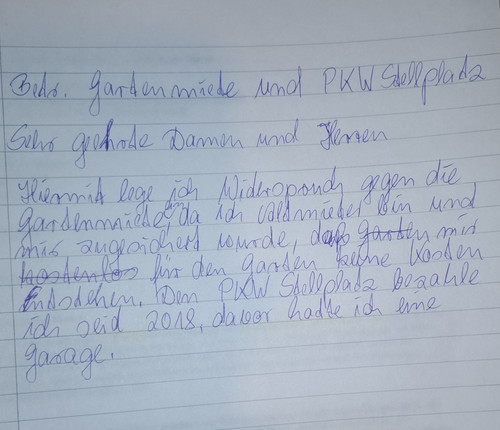 Betr. Gartenmiete und PKW Stellplatz
Sehr geehrte Damen und Herren
Hiermit lege ich Widerspruch gegen die
Gartenmiete ein, da ich Altmieter bin und
mir zugesichert wurde, daß garten mir
kostenlos für den Garten keine Kosten
Entstehen. Den PKW Stellplatz bezahle
ich seid 2018, davor hatte ich eine
Garage.